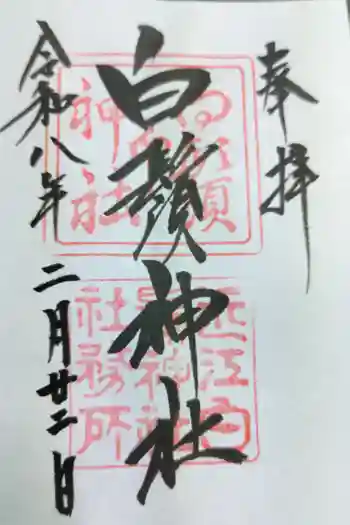 奉拝
白鬚神社
令和八年二月廿二日
白鬚神社
近江白鬚神社社務所